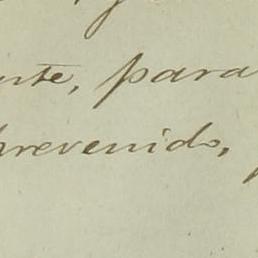 para
prevenido,